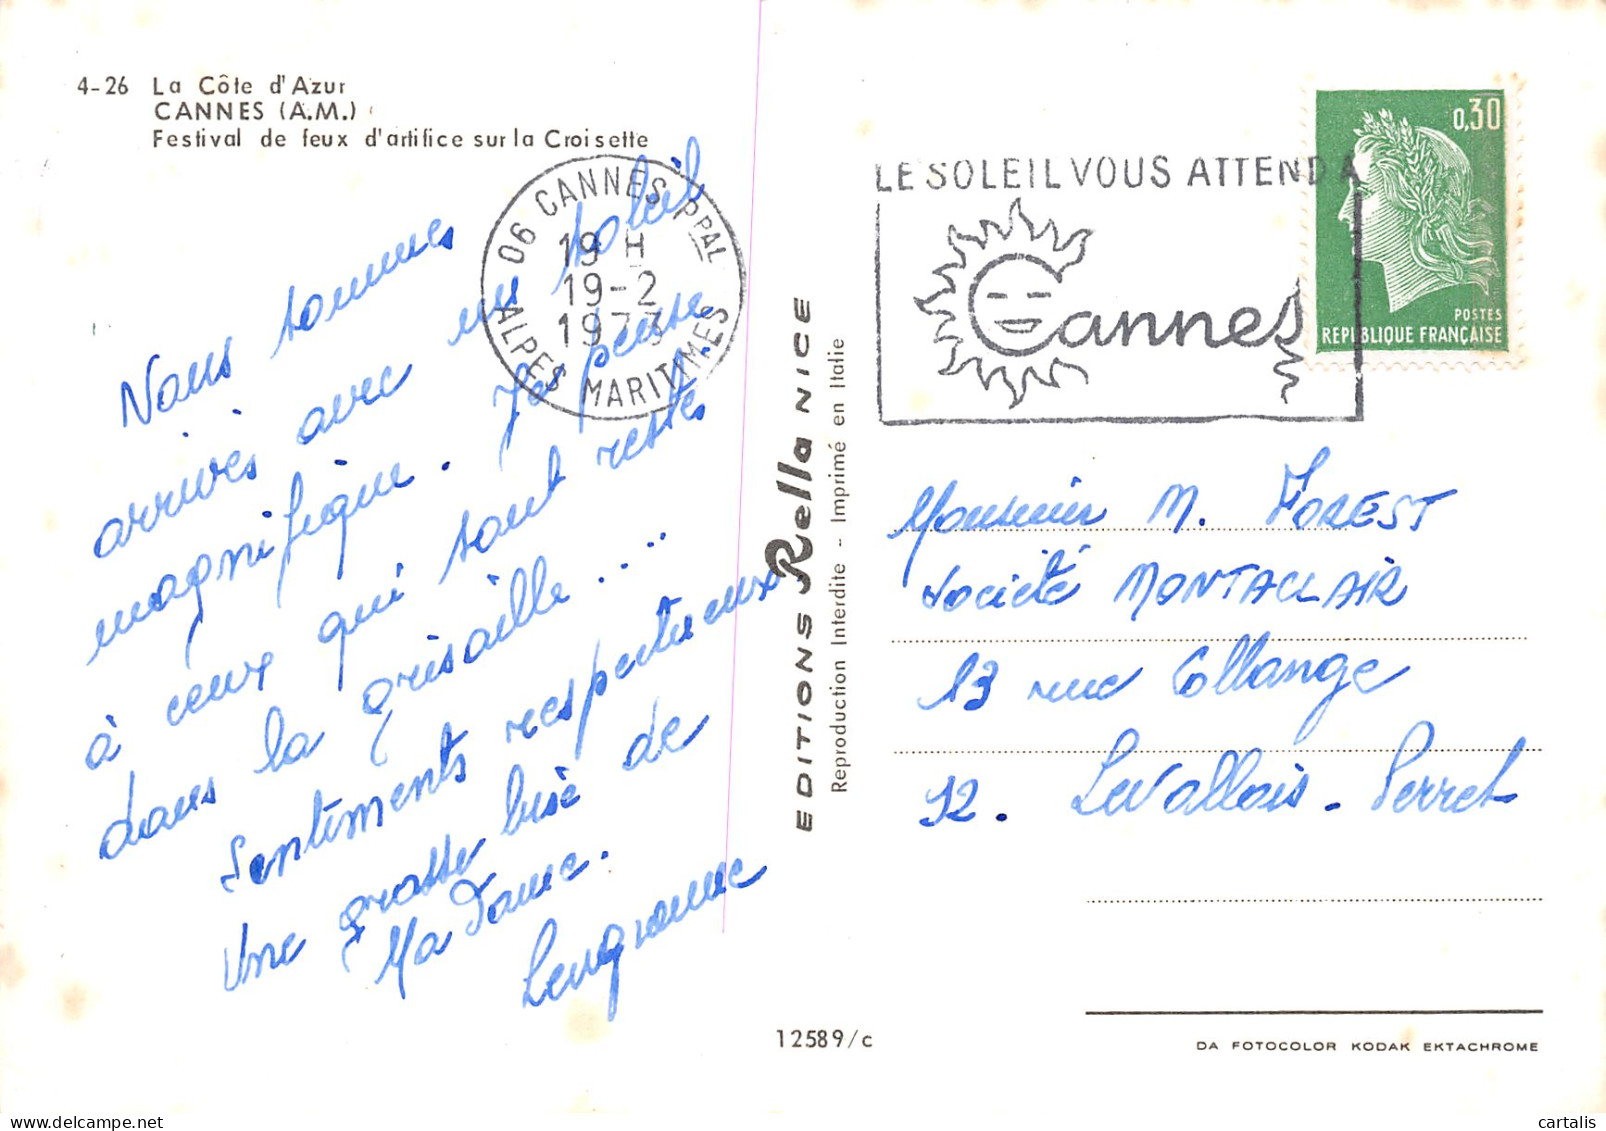 4-26 La Côte d'Azur
CANNES (A.M.)
Festival de feux d'artifice sur la Croisette
Nous sommes
arrivés avec un soleil
magnifique. Je pense
à ceux qui sont restés
dans la grisaille...
Sentiments respectueux
Une grosse bise de
Madame.
06 CANNES PPAL
19 H
19-2
1973
ALPES MARITIMES
EDITIONS Rella NICE
Reproduction Interdite - Imprimé en Italie
LE SOLEIL VOUS ATTEND A
Cannes
0,30
POSTES
REPUBLIQUE FRANÇAISE
Monsieur M. FOREST
Société MONTACLAIR
13 rue Collange
92. Levallois-Perret
12589/c
DA FOTOCOLOR KODAK EKTACHROME
cartalis sur Delcampe.net